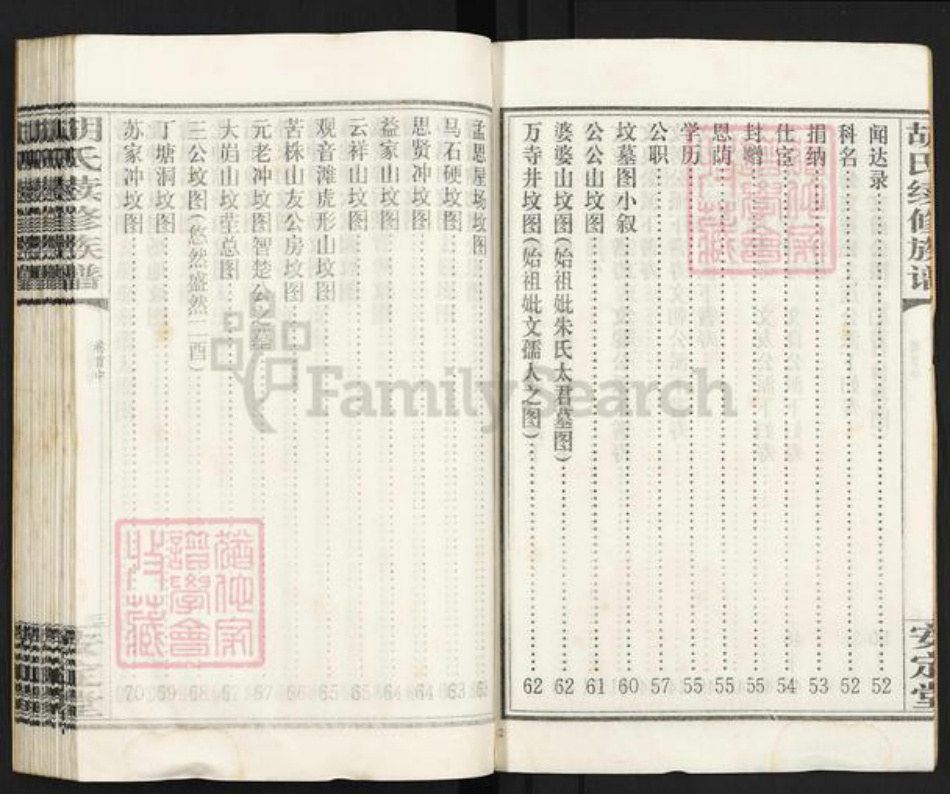 胡氏续修族谱
安定堂
闻达录 52
科名 52
捐纳 53
仕宦 54
封赠 55
恩荫 55
学历 55
公职 57
坟墓图小叙 60
公公山坟图 61
婆婆山坟图(始祖妣朱氏太君墓图) 62
万寺井坟图(始祖妣文儒人之图) 62
孟思屋场坟图
马石硬坟图 63
思贤冲坟图 64
益家山坟图 64
云祥山坟图 65
观音滩虎形山坟图 65
苦株山友公房坟图 66
元老冲坟图智楚公 67
大山坟茔总图 67
三公坟图(悠然盛然二酉) 68
丁塘洞坟图 69
苏家冲坟图 70
卷首中
FamilySearch